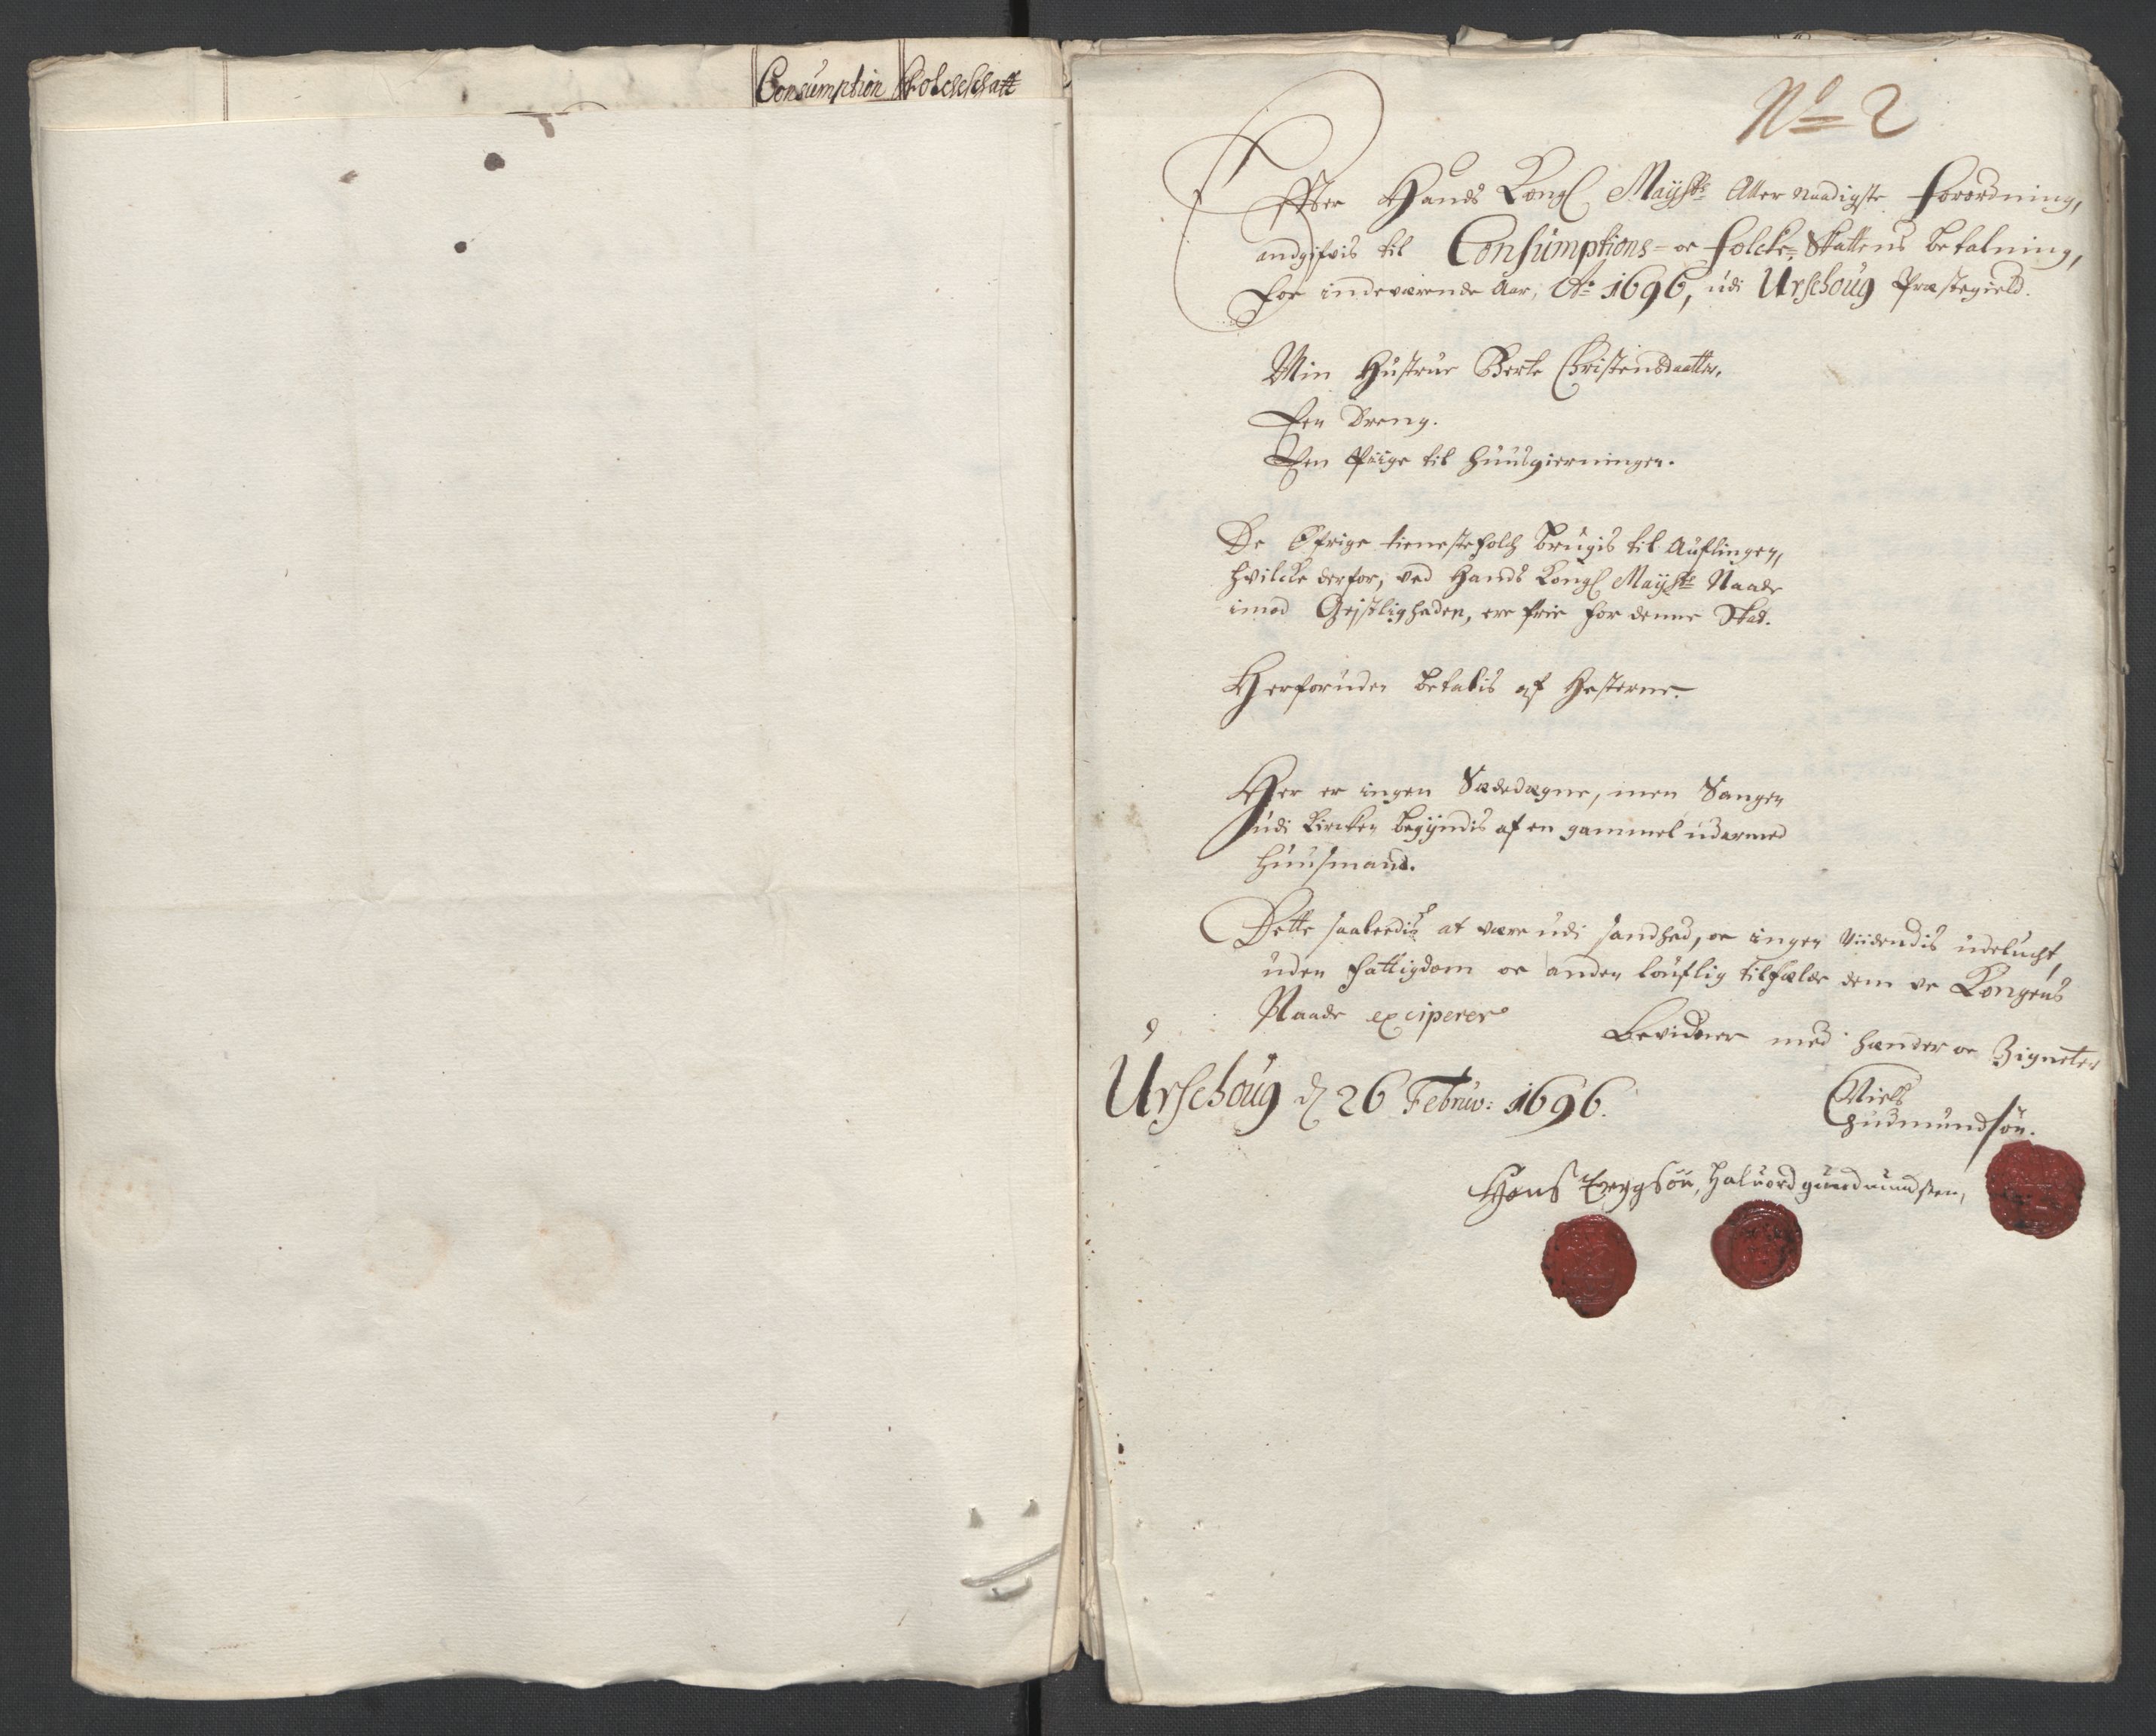 Consumption Folcheschatt
No 2
Effter Hands Kongl Maysts Aller naadigste forordning,
andgifvis til Consumptions- oc folcke-Skattens betalning,
for indeværende Aar, Ao 1696, udi Urschoug Præstegield.
Min Hustrue Berte Christensdaatter.
Een Dreng.
Een Piige til huusgierningen.
De Øfrige tienestefolch brugis til Auflingen,
hvilcke derfor, ved Hands Kongl Maysts Naade
imod Geistligheden, ere frie for denne Skat.
Herforuden betalis af Hesterne.
Her er ingen Sædedegne, men Sangen
udi Kircken begyndis af en gammel udarmed
huusmand.
Dette saaledis at være udi sandhed, oc ingen viidendis udelucht,
uden fattigdom oc anden louflig tilfælde dem ve Kongens
Naade exciperer
Bevidner med hænder oc Zigneter
Urschoug d 26 Februv: 1696.
Niels
Gudmundsøn.
Hans Halvord gundmundsen,